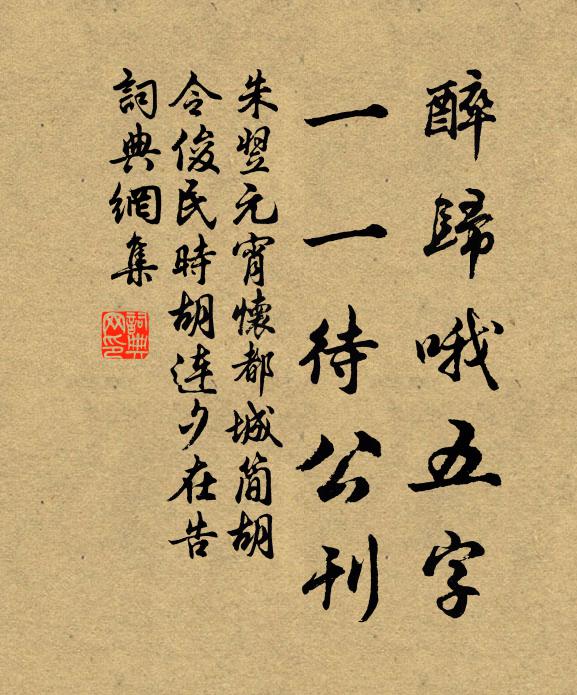 醉歸哦五字
一一待公刊
朱翌元宵懷都城簡胡
令俊民時胡連夕在告
詞典網集
詞典网印